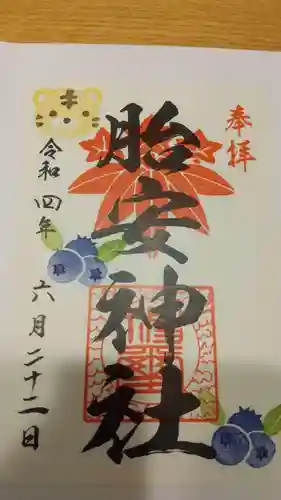 奉拝
胎安神社
令和四年
六月二十二日